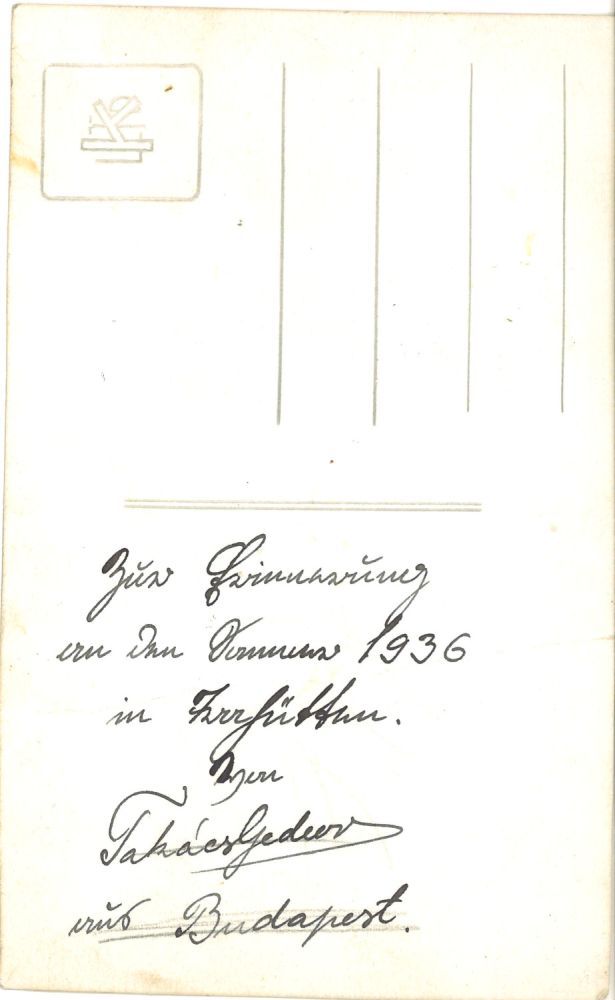 Zur Erinnerung
an den Sommer 1936
in
von
Takács Gedeon
aus Budapest.